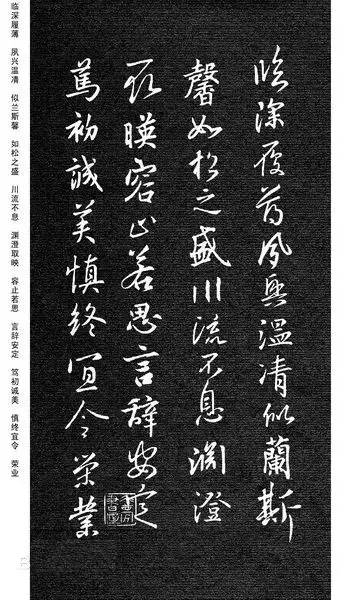 臨深履薄夙興温凊似蘭斯
馨如松之盛川流不息渊澄
取暎容止若思言辭安定
篤初誠美慎終宜令榮業
临深履薄 夙兴温凊 似兰斯馨 如松之盛 川流不息 渊澄取映 容止若思 言辞安定 笃初诚美 慎终宜令 荣业